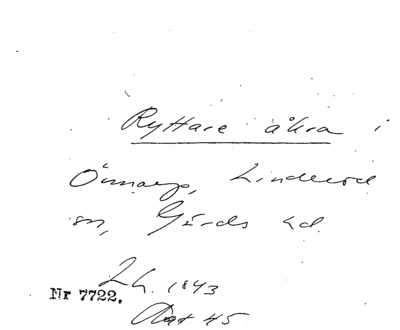 Ryttare åkra i
Önnarp, Linderöd
sn, Gärds hd.
LL. 1843
Nr 7722.
Aat 45